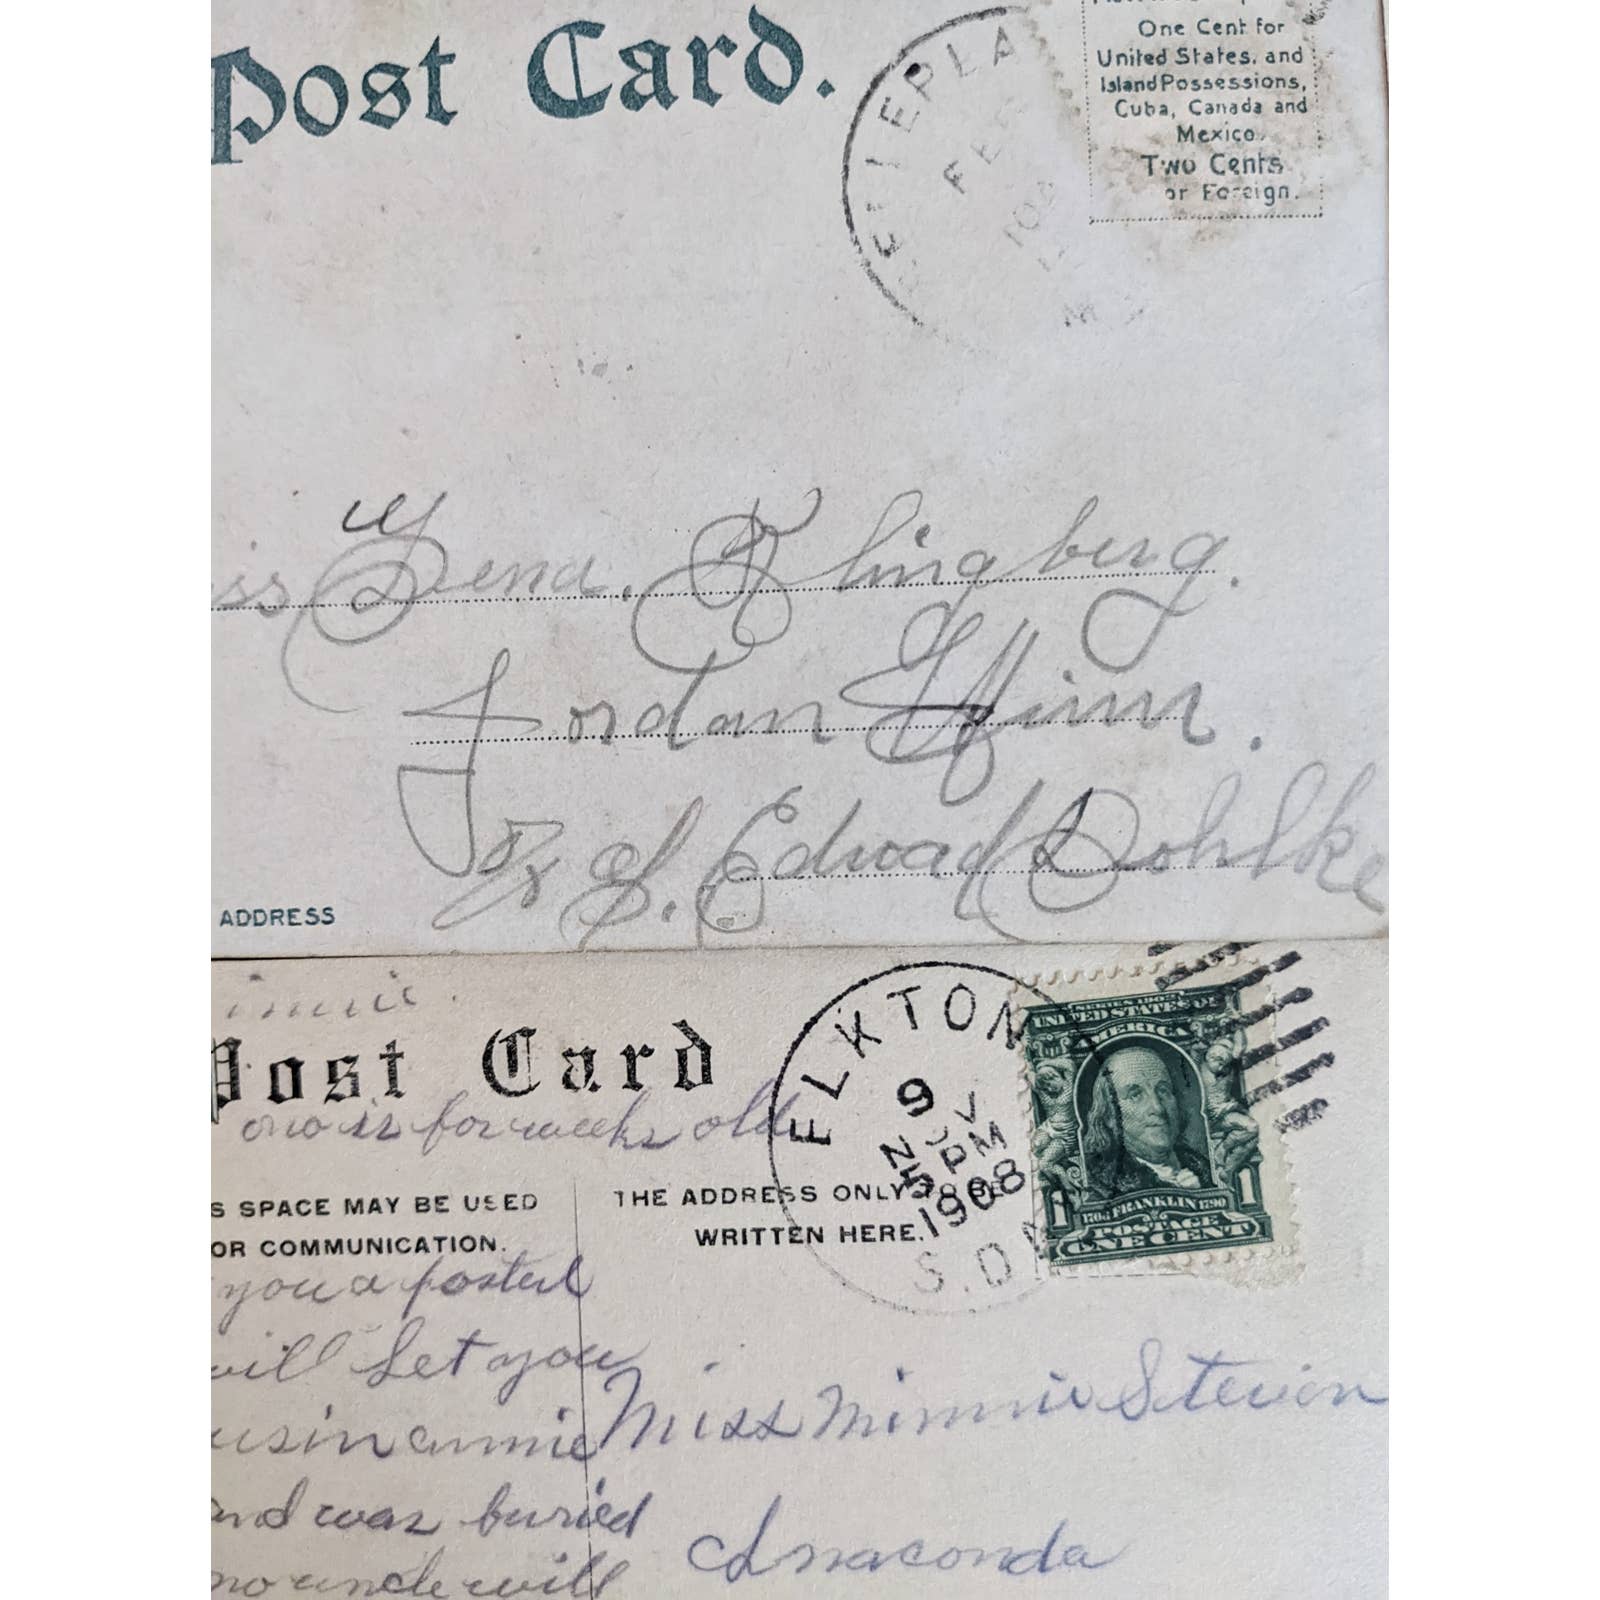 Post Card.
One Cent for
United States, and
Island Possessions,
Cuba, Canada and
Mexico.
Two Cents
or Foreign.
FEB
iss Lena. Klingberg.
Jordan Minn.
Edward Dohlke
ADDRESS
Post Card
one is for weeks old
S SPACE MAY BE USED
OR COMMUNICATION.
THE ADDRESS ONLY TO BE
WRITTEN HERE.
ELKTON
9
NOV
5 PM
1908
S. DAK
SERIES 1902
UNITED STATES OF
AMERICA
1706 FRANKLIN 1790
POSTAGE
1 ONE CENT 1
you a postal
will let you
usin annie
and was buried
no uncle will
Miss Minnie Steven
Anaconda